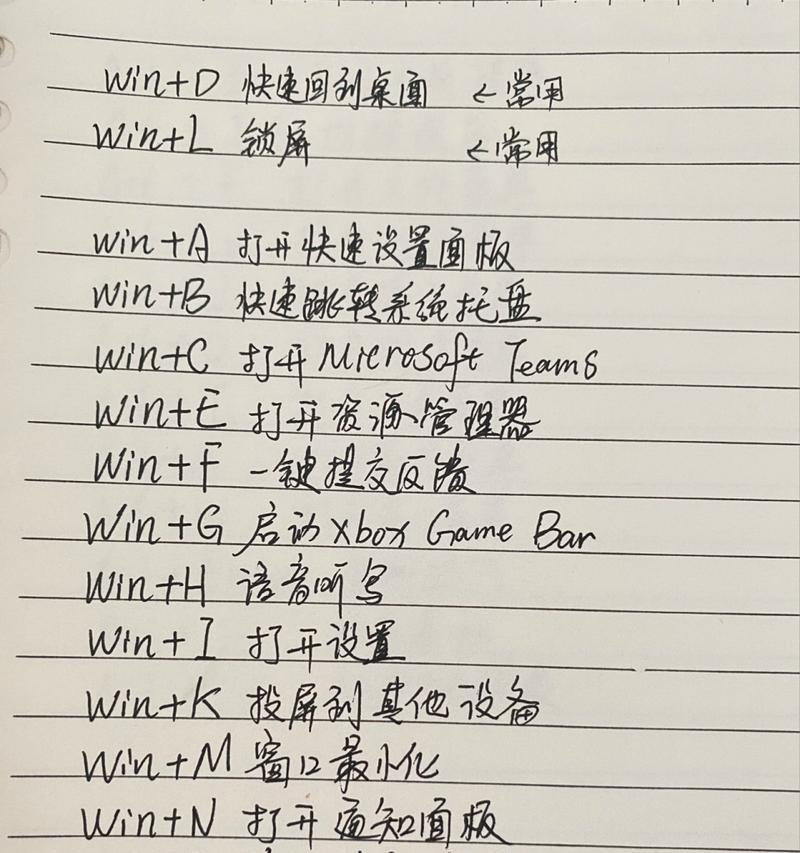 Win+D 快速回到桌面 ←常用
Win+L 锁屏 ←常用
Win+A 打开快速设置面板
Win+B 快速跳转系统托盘
Win+C 打开Microsoft Teams
Win+E 打开资源管理器
Win+F 一键提交反馈
Win+G 启动Xbox Game Bar
Win+H 语音听写
Win+I 打开设置
Win+K 投屏到其他设备
Win+M 窗口最小化
Win+N 打开通知面板